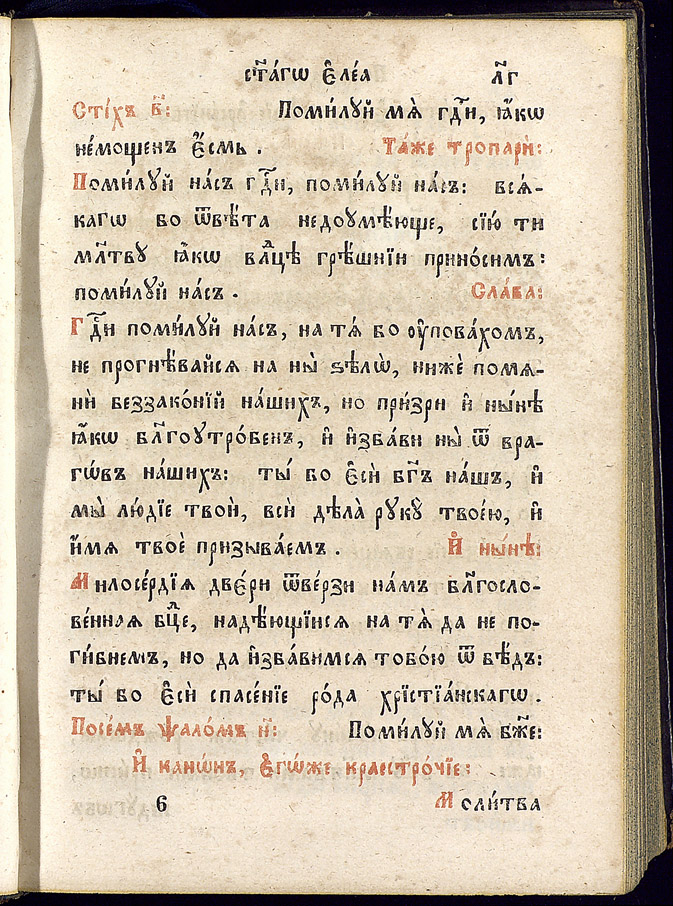 ст҃а́гѡ є҆ле́а л҃г
Сті́хъ в҃: Поми́лꙋй мѧ̀ гдⷭ҇и, ꙗ҆́кѡ
не́мощенъ є҆́смь .   Та́же тропарѝ:
Поми́лꙋй на́съ гдⷭ҇и, поми́лꙋй на́съ: всѧ́-
кагѡ бо ѿвѣ́та недоꙋмѣ́юще, сїю̀ ти
мл҃твꙋ ꙗ҆́кѡ влⷣцѣ грѣ́шнїи прино́симъ:
поми́лꙋй на́съ .   Сла́ва:
Гдⷭ҇и поми́лꙋй на́съ, на тѧ́ бо ᲂу҆пова́хомъ,
не прогнѣ́вайсѧ на ны̀ ѕѣлѡ̀, нижѐ помѧ-
нѝ беззако́нїй на́шихъ, но при́зри и҆ ны́нѣ
ꙗ҆́кѡ бл҃гоꙋтро́бенъ, и҆ и҆зба́ви ны̀ ѿ вра-
гѡ́въ на́шихъ: ты́ бо є҆сѝ бг҃ъ на́шъ, и҆
мы̀ лю́дїе твоѝ, всѝ дѣла̀ рꙋкꙋ̀ твое́ю, и҆
и҆́мѧ твоѐ призыва́емъ .   И҆ ны́нѣ:
Милосе́рдїѧ две́ри ѿве́рзи на́мъ бл҃госло-
ве́ннаѧ бцⷣе, надѣ́ющїисѧ на тѧ̀ да не по-
ги́бнемъ, но да и҆зба́вимсѧ тобо́ю ѿ бѣ́дъ:
ты́ бо є҆сѝ спасе́нїе ро́да хрїстїа́нскагѡ .
Посе́мъ ѱало́мъ н҃:   Поми́лꙋй мѧ̀ бж҃е:
И҆ канѡ́нъ, є҆гѡ́же краестро́чїе:
6   Моли́тва